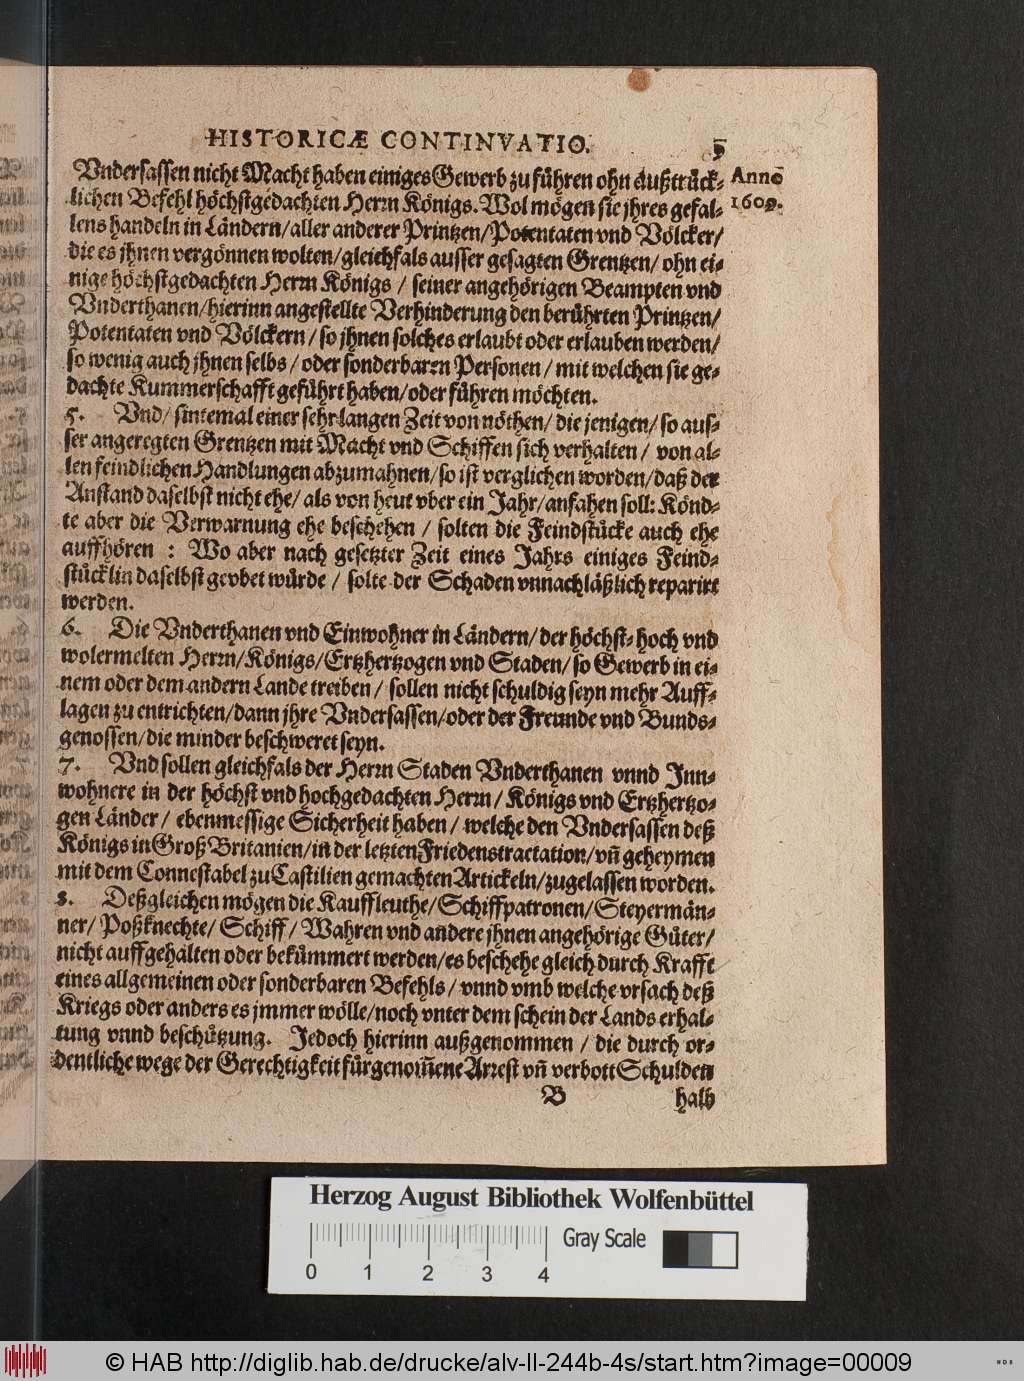 HISTORICÆ CONTINVATIO. 5
Vndersassen nicht Macht haben einiges Gewerb zu führen ohn außtrück- Anno
lichen Befehl höchstgedachten Herrn Königs. Wol mögen sie jhres gefal- 1609.
lens handeln in Ländern/aller anderer Printzen/Potentaten vnd Völcker/
die es jhnen vergönnen wolten/gleichfals ausser gesagten Grentzen/ ohn ei-
nige höchstgedachten Herrn Königs / seiner angehörigen Beampten vnd
Vnderthanen/hierinn angestellte Verhinderung den berührten Printzen/
Potentaten vnd Völckern / so jhnen solches erlaubt oder erlauben werden/
so wenig auch jhnen selbs / oder sonderbaren Personen / mit welchen sie ge-
dachte Kummerschafft geführt haben/oder führen möchten.
5. Vnd/ sintemal einer sehr langen Zeit von nöthen/ die jenigen/ so aus-
ser angeregten Grentzen mit Macht vnd Schiffen sich verhalten / von al-
len feindlichen Handlungen abzumahnen/so ist verglichen worden/daß der
Anstand daselbst nicht ehe/ als von heut vber ein Jahr/anfahen soll: Könd-
te aber die Verwarnung ehe beschehen / solten die Feindstücke auch ehe
auffhören : Wo aber nach gesetzter Zeit eines Jahrs einiges Feind-
stücklin daselbst gevbet würde / solte der Schaden vnnachläßlich reparirt
werden.
6. Die Vnderthanen vnd Einwohner in Ländern/der höchst- hoch vnd
wolermelten Herrn/Königs/Ertzhertzogen vnd Staden/so Gewerb in ei-
nem oder dem andern Lande treiben / sollen nicht schuldig seyn mehr Auff-
lagen zu entrichten/dann jhre Vndersassen/oder der Freunde vnd Bunds-
genossen/die minder beschweret seyn.
7. Vnd sollen gleichfals der Herrn Staden Vnderthanen vnnd Inn-
wohnere in der höchst vnd hochgedachten Herrn/ Königs vnd Ertzhertzo-
gen Länder/ ebenmessige Sicherheit haben / welche den Vndersassen deß
Königs in Groß Britanien/in der letzten Friedenstractation/vn̄ geheymen
mit dem Connestabel zu Castilien gemachten Artickeln/zugelassen worden.
8. Deßgleichen mögen die Kauffleuthe/Schiffpatronen/Steyermän-
ner/ Poßknechte/ Schiff/ Wahren vnd andere jhnen angehörige Güter/
nicht auffgehalten oder bekümmert werden/es beschehe gleich durch Krafft
eines allgemeinen oder sonderbaren Befehls / vnnd vmb welche vrsach deß
Kriegs oder anders es jmmer wölle/noch vnter dem schein der Lands erhal-
tung vnnd beschützung. Jedoch hierinn außgenommen / die durch or-
dentliche wege der Gerechtigkeit fürgenom̄ene Arrest vn̄ verbott Schulden
B halb
Herzog August Bibliothek Wolfenbüttel
Gray Scale
0 1 2 3 4
© HAB http://diglib.hab.de/drucke/alv-ll-244b-4s/start.htm?image=00009